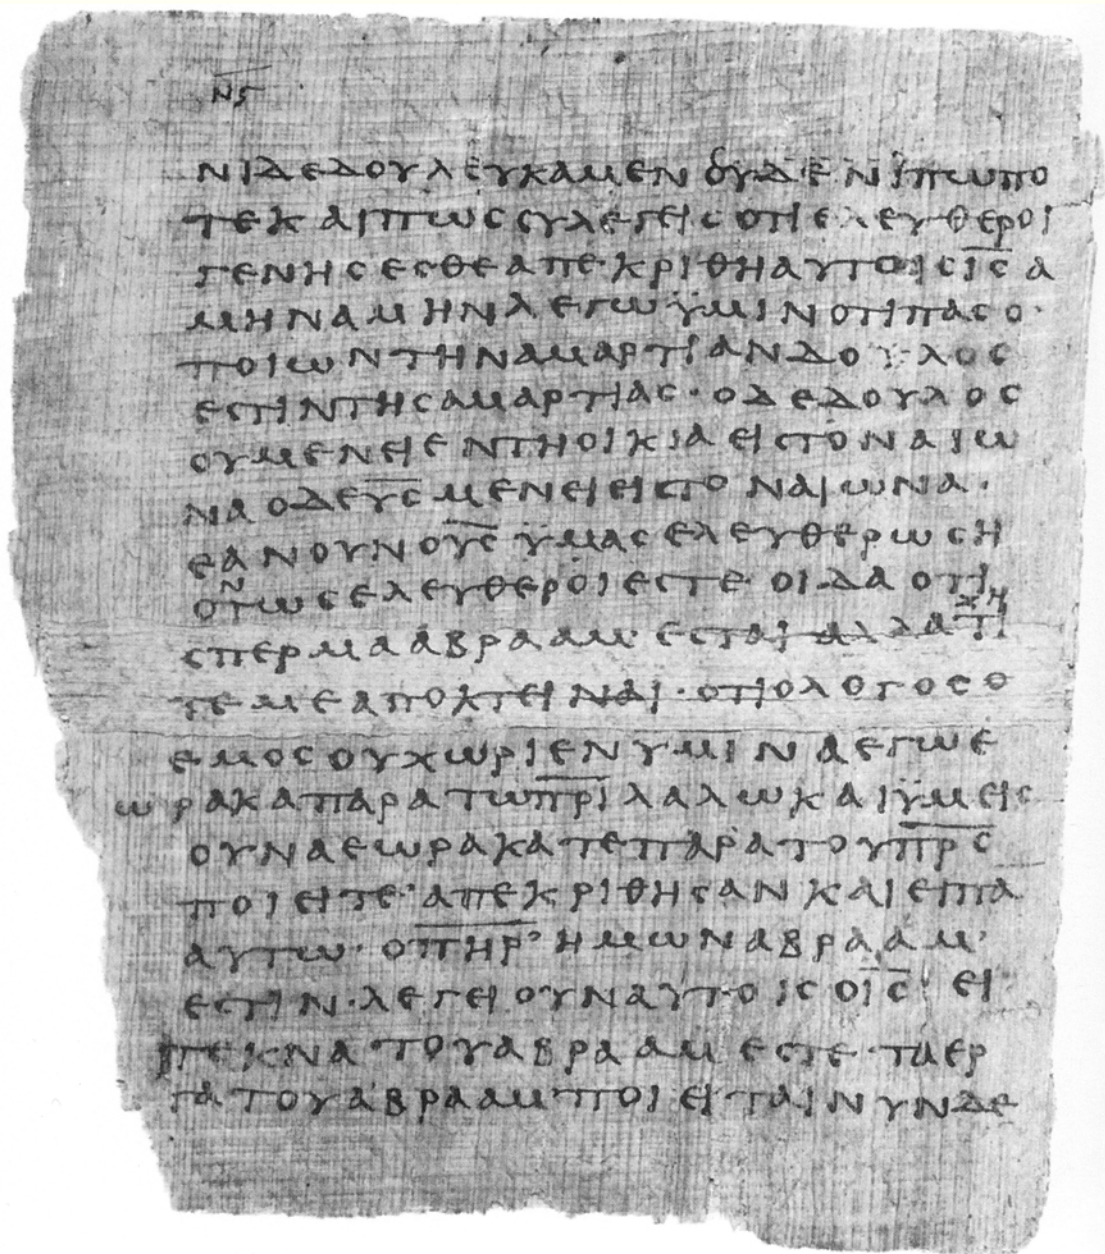 ν̅ϛ̅
νιδεδουλευκαμενουδενιπωπο
τεκαιπωςσυλεγειςοτιελευθεροι
γενησεσθεαπεκριθηαυτοιςι̅ς̅α
μηναμηνλεγωϋμινοτιπασο
ποιωντηναμαρτιανδουλος
εστιντηςαμαρτιας·οδεδουλος
ουμενειεντηοικιαειςτοναιω
ναοδευ̅ς̅μενειειςτοναιωνα·
εανουνου̅ς̅ϋμαςελευθερωση
οτ`ν´ωςελευθεροιεστε·οιδαοτι
σπερμααβρααμ·εσταιαλλα`ζη´τι
τεμεαποκτειναι·οτιολογοςο
εμοςουχωριενυμιναεγωε
ωρακαπαρατωπ̅ρ̅ι̅λαλωκαιϋμεις
ουναεωρακατεπαρατουπ̅ρ̅ς̅
ποιειτε·απεκριθησανκαιειπα
αυτω·οπ̅η̅ρ̅ʼημωναβρααμ·
εστιν·λεγειουναυτοιςοι̅ς̅·ει
τεκνατουαβρααμεστε·ταερ
γατουαβρααμποιειταινυνδε